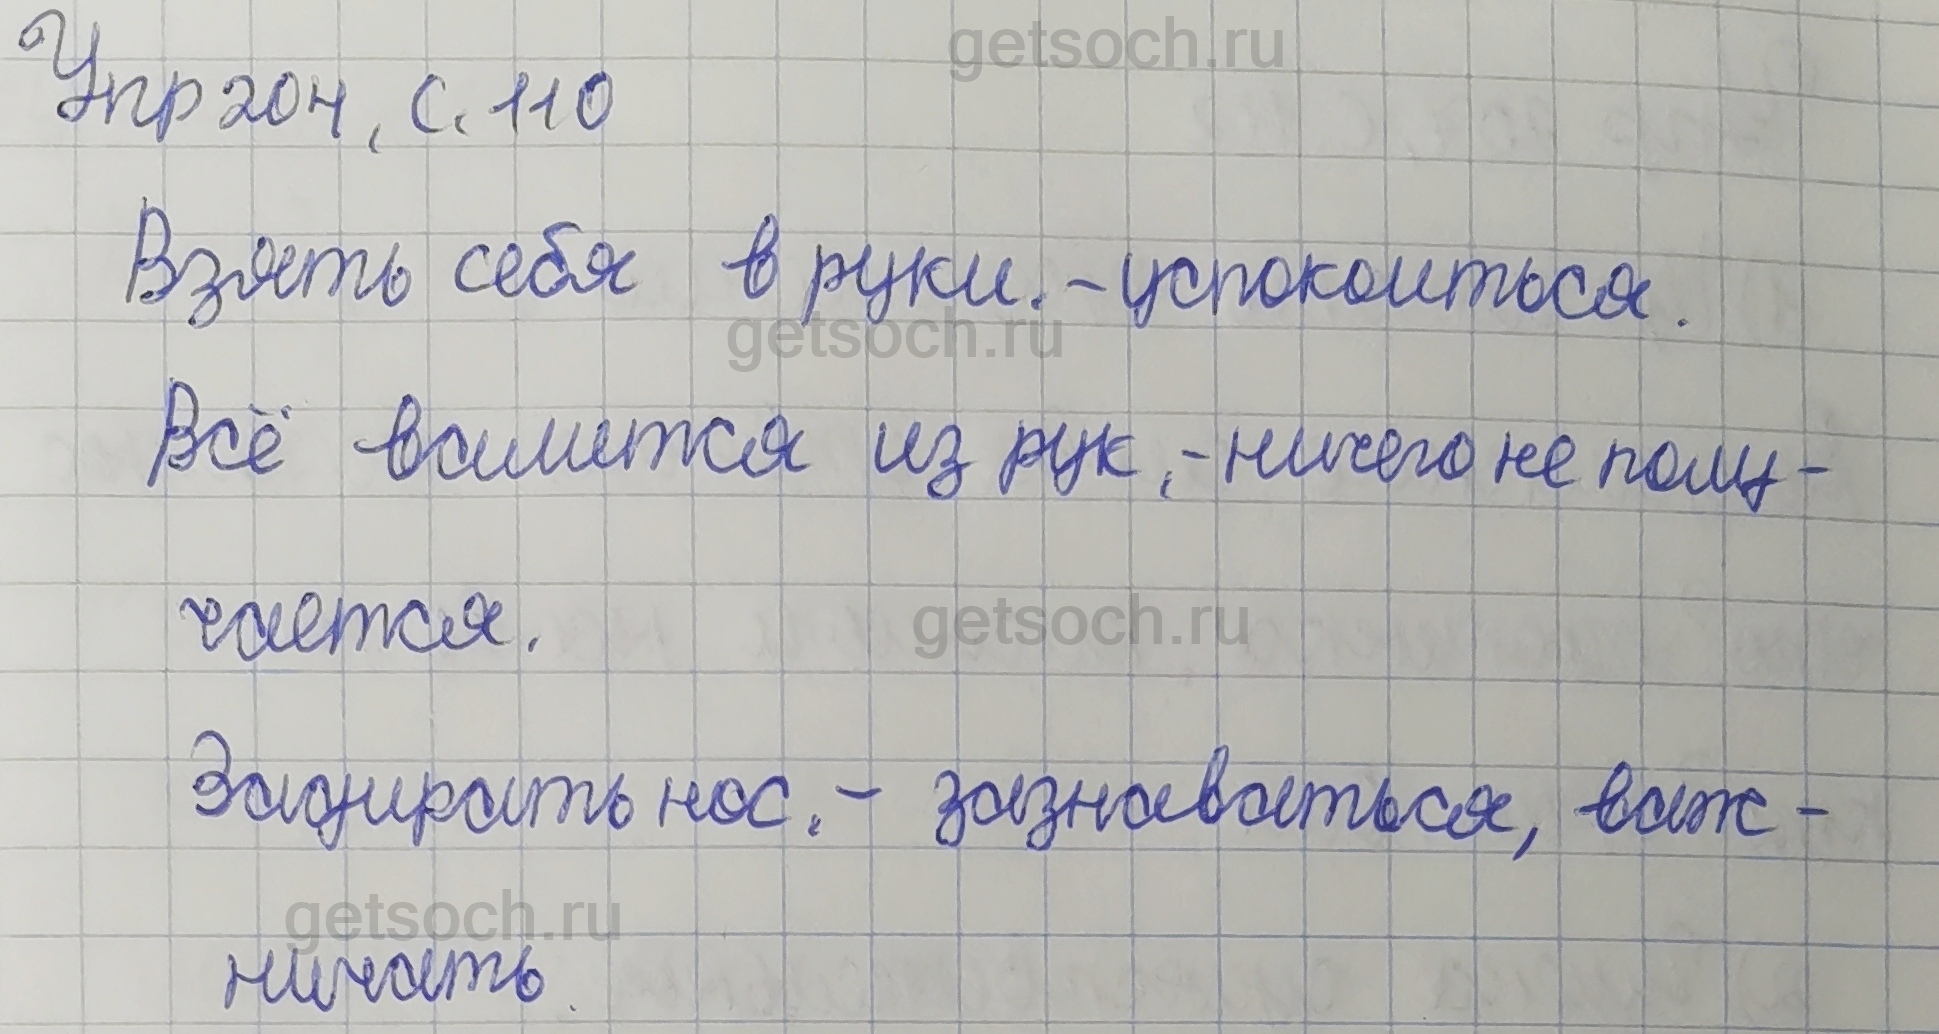 getsoch.ru
Упр 204, с. 110
Взять себя в руки. - успокоиться.
getsoch.ru
Всё валится из рук, - ничего не полу-
чается.
getsoch.ru
Задирать нос. - зазнаваться, важ-
getsoch.ru
ничать.